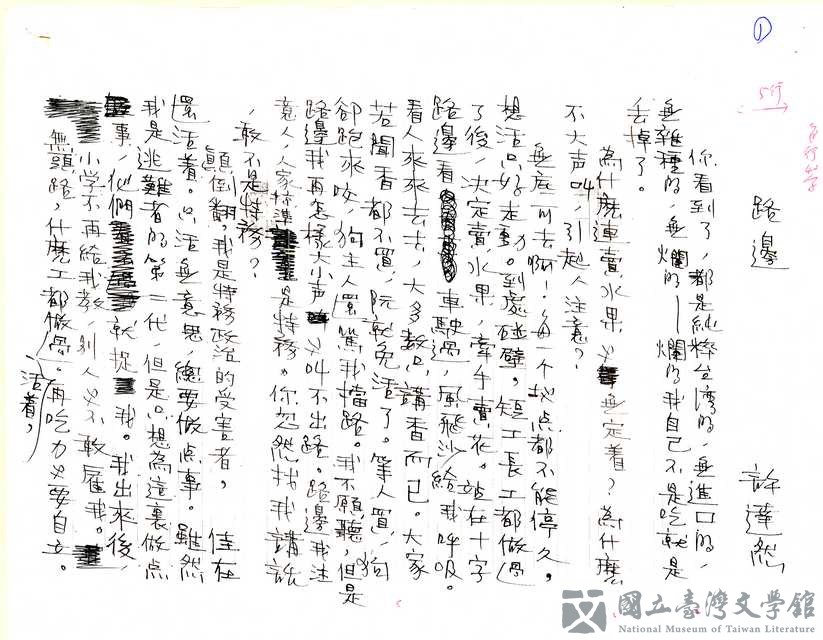 ①
5行
路邊
許達然
你看到了，都是純粹台湾的，無進口的，
無雜種的，無爛的——爛的我自己不是吃就是
丟掉了。
為什麼連賣水果也無定着？為什麼
不大声叫，引起人注意？
無底可去啊！每一个地点都不能停久，
想活只好走事。到處碰壁。短工長工都做過
了後，決定賣水果，牽手賣花。站在十字
路邊看車駛過，風飛沙給我呼吸。
看人來來去去，大多数只講香而已。大家
若聞香都不買，阮就免活了。等人買，狗
卻跑來咬，狗主人還罵我擋路。我不願聽，但是
路邊我再怎樣大小声也叫不出路。路邊我注
意人，人家標準是特務。你忽然找我講話
，敢不是特務？
顛倒翻，我是特務政治的受害者，住在
還活着。只活無意思，總要做点事。雖然
我是逃難者的第二代，但是只想為這裏做点
事，他們就捉我。我出來後，
小学不再給我教，別人也不敢雇我。
無頭路，什麼工都做過。再吃力也要自立。
活着，
國立臺灣文學館
National Museum of Taiwan Literature